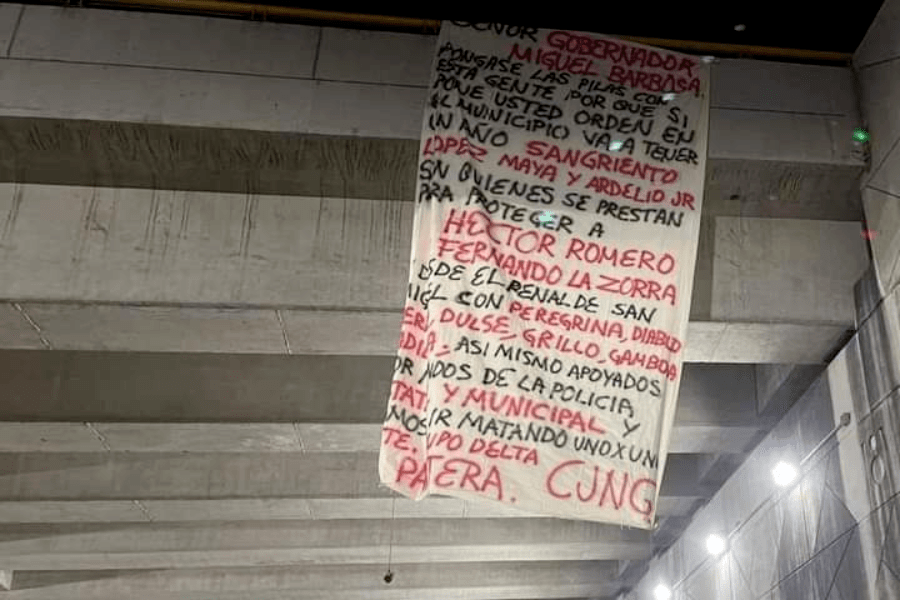 SEÑOR GOBERNADOR
MIGUEL BARBOSA,
PONGASE LAS PILAS CON
ESTA GENTE POR QUE SI
PONE USTED ORDEN EN
EL MUNICIPIO VA A TENER
UN AÑO SANGRIENTO
LOPEZ MAYA Y ARDELIO JR
SN QUIENES SE PRESTAN
PRA PROTEGER A
HECTOR ROMERO
FERNANDO LA ZORRA
SDE EL PENAL DE SAN
CON PEREGRINA, DIABLO
DULSE, GRILLO, GAMBOA
ASI MISMO APOYADOS
DOS DE LA POLICIA,
TAT Y MUNICIPAL Y
MOS IR MATANDO UNO X UN
TE. UPO DELTA
PATERA. CJNG